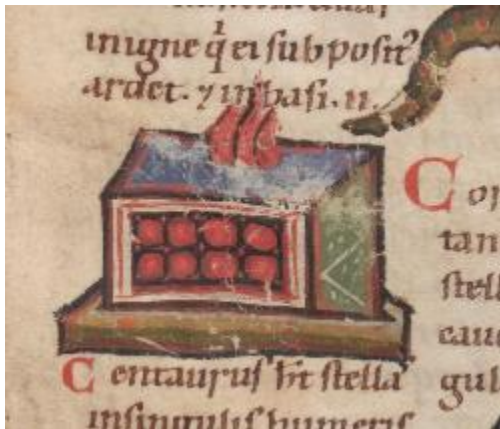 in igne q̇ ei subposit᷒
ardet. ⁊ in basi. ıı.
Centaurus h̅t stella
in singulis humeris
C
tan
stel
cau
gul